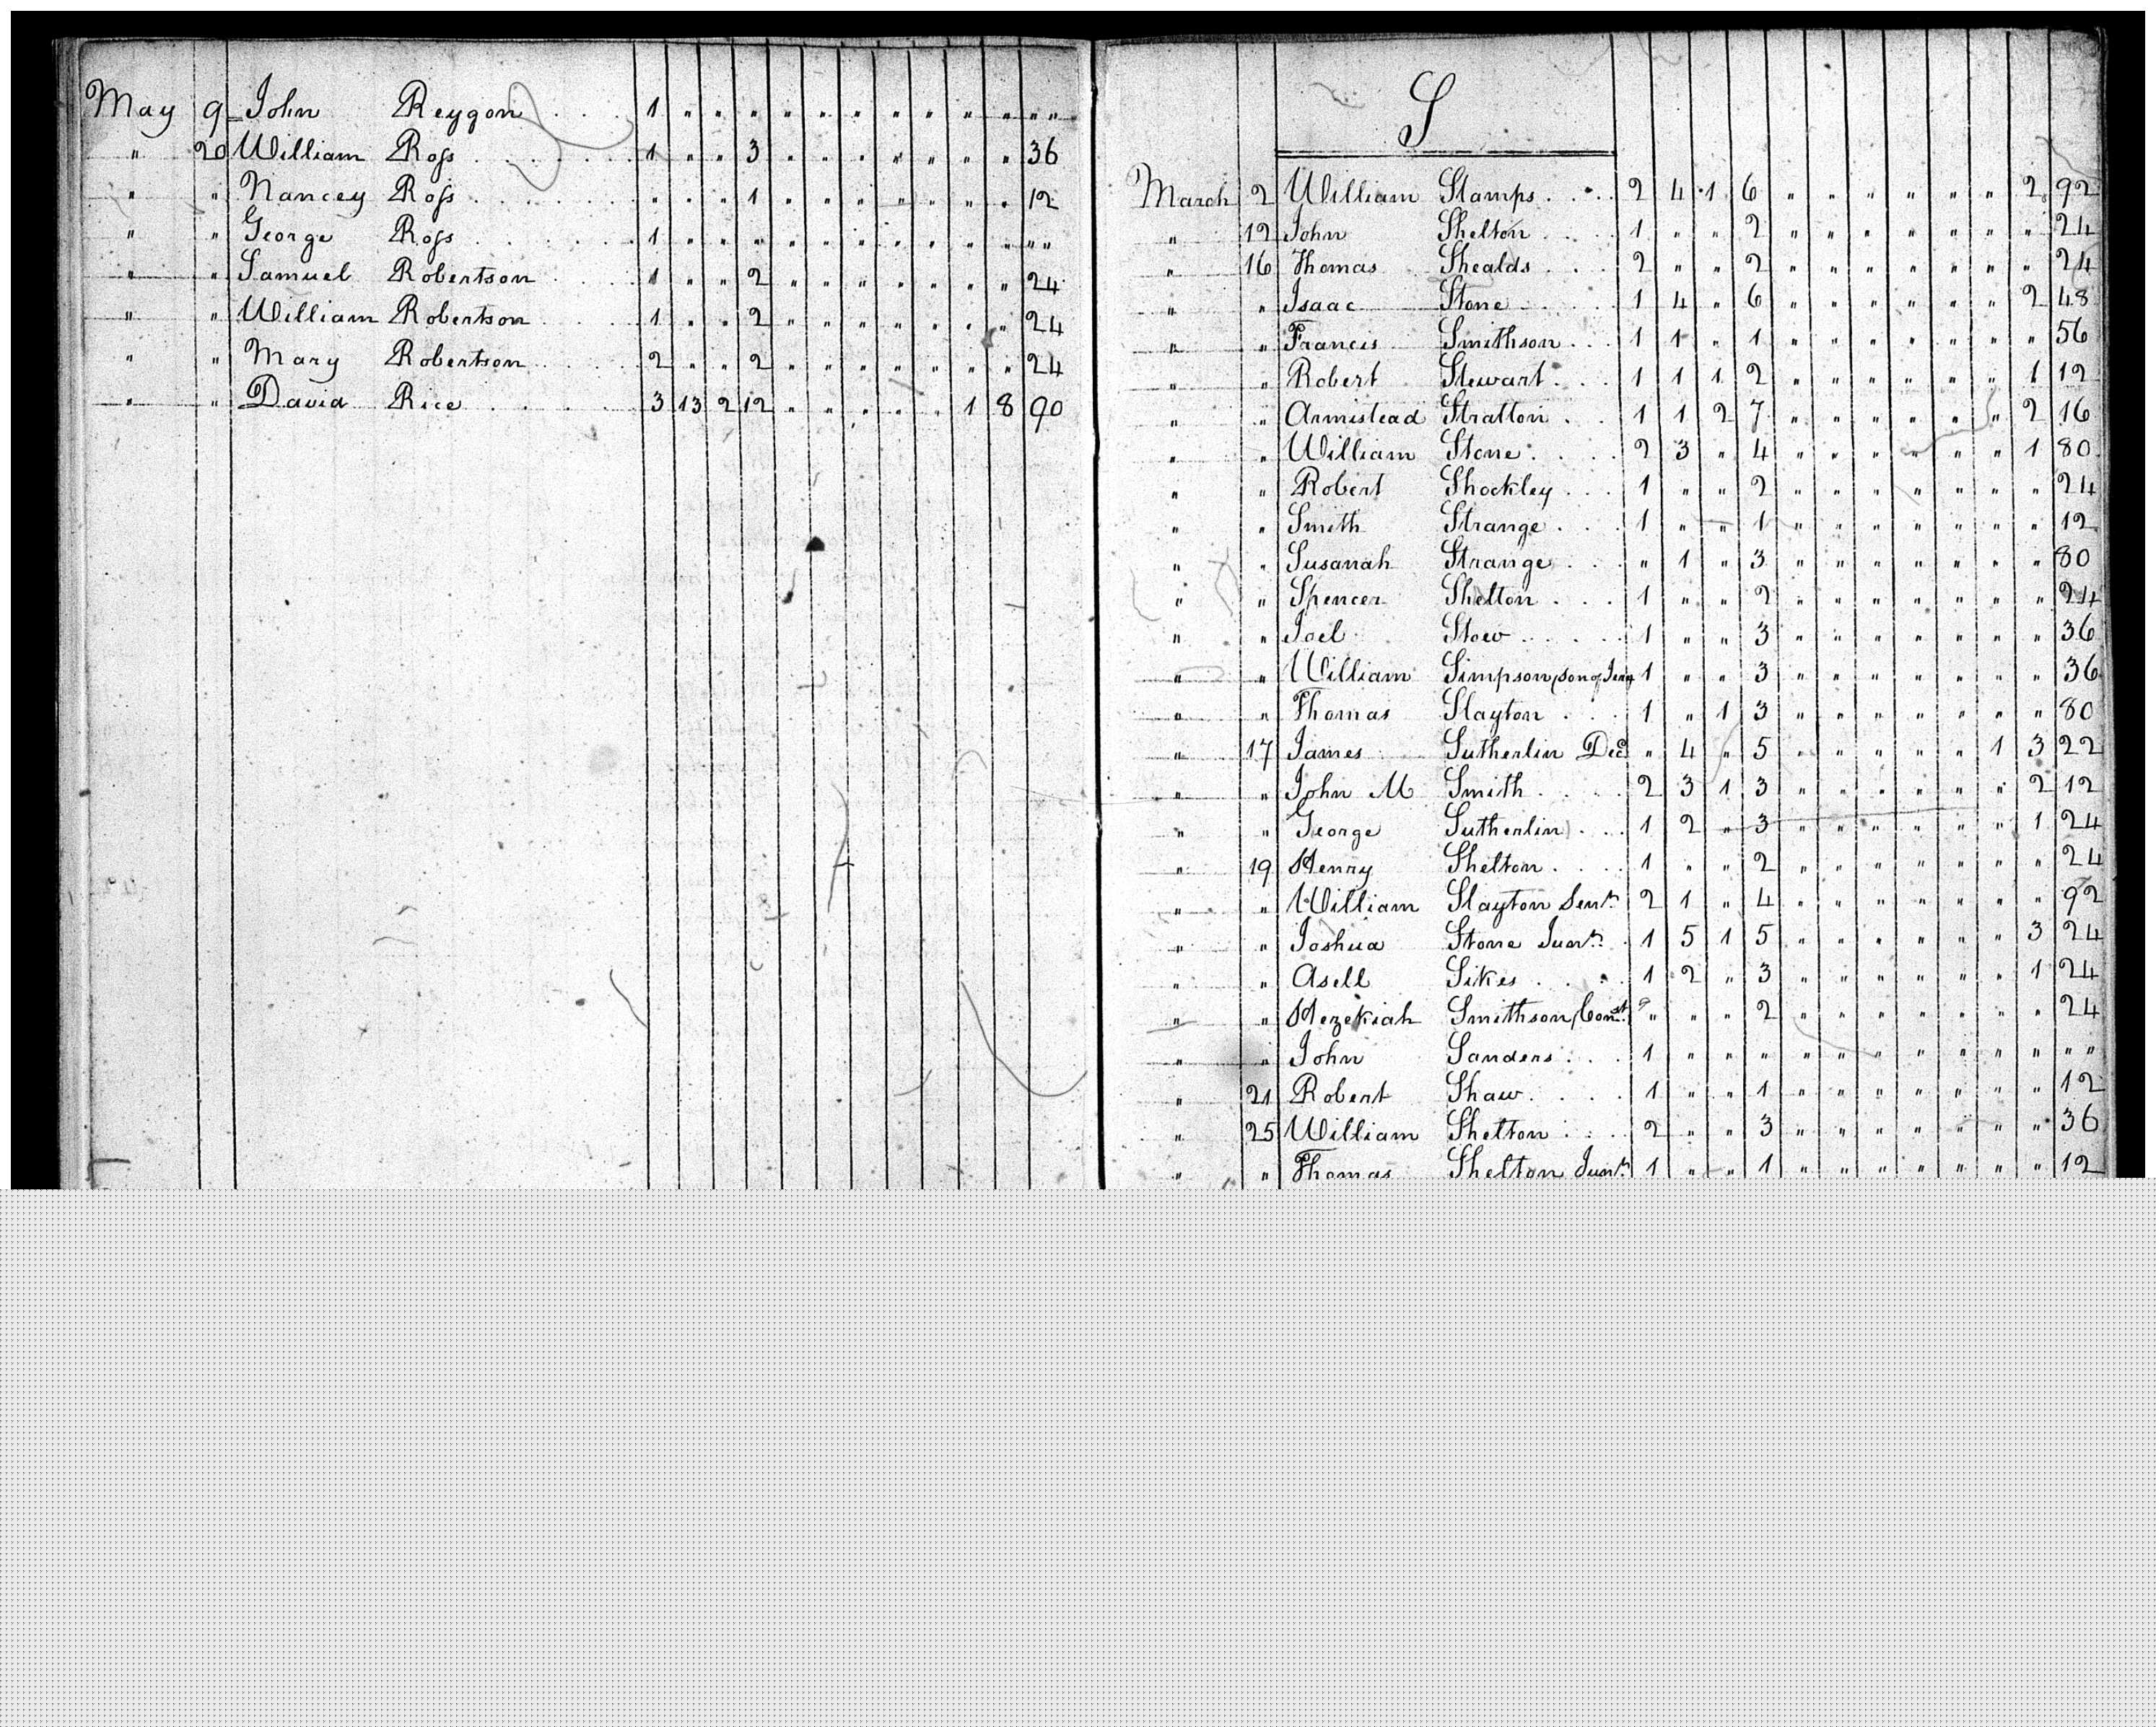 May 9 John Reygon . . . 1 " " " " " " " " " " " "
" 20 William Ross . . . . . . 1 " " 3 " " " " " " " 36
" " Nancey Ross . . . . . . " " " 1 " " " " " " " 12
" " George Ross . . . . . . 1 " " " " " " " " " " " "
" " Samuel Robertson . . . 1 " " 2 " " " " " " " 24
" " William Robertson . . . 1 " " 2 " " " " " " " 24
" " Mary Robertson . . . . 2 " " 2 " " " " " " " 24
" " David Rice . . . . . 3 13 2 12 " " " " " 1 8 90
S
March 2 William Stamps . . . 2 4 1 6 " " " " " " 2 92
" 12 John Shelton . . . 1 " " 2 " " " " " " " 24
" 16 Thomas Shealds . . . 2 " " 2 " " " " " " " 24
" " Isaac Stone . . . 1 4 " 6 " " " " " " 2 48
" " Francis Smithson . . . 1 1 " 1 " " " " " " " 56
" " Robert Stewart . . . 1 1 1 2 " " " " " " 1 12
" " Armistead Stratton . . 1 1 2 7 " " " " " " 2 16
" " William Stone . . . . 2 3 " 4 " " " " " " 1 80
" " Robert Shockley . . . 1 " " 2 " " " " " " " 24
" " Smith Strange . . . 1 " " 1 " " " " " " " 12
" " Susanah Strange . . . " 1 " 3 " " " " " " " 80
" " Spencer Shelton . . . 1 " " 2 " " " " " " " 24
" " Joel Stow . . . . . 1 " " 3 " " " " " " " 36
" " William Simpson (son of 1 " " 3 " " " " " " " 36
" " Thomas Slayton . . . 1 " 1 3 " " " " " " " 80
" 17 James Sutherlin Decd " 4 " 5 " " " " " 1 3 22
" " John M Smith . . . . 2 3 1 3 " " " " " " 2 12
" " George Sutherlin . . . 1 2 " 3 " " " " " " 1 24
" 19 Henry Shelton . . . . 1 " " 2 " " " " " " " 24
" " William Slayton Senr 2 1 " 4 " " " " " " " 92
" " Joshua Stone Junr . 1 5 1 5 " " " " " " 3 24
" " Asell Sikes . . . . 1 2 " 3 " " " " " " 1 24
" " Hezekiah Smithson (Const " " " 2 " " " " " " " 24
" " John Sanders . . . 1 " " " " " " " " " " " "
" 21 Robert Shaw . . . . 1 " " 1 " " " " " " " 12
" 25 William Shelton . . . . 2 " " 3 " " " " " " " 36
" " Thomas Shelton Junr 1 " " 1 " " " " " " " 12